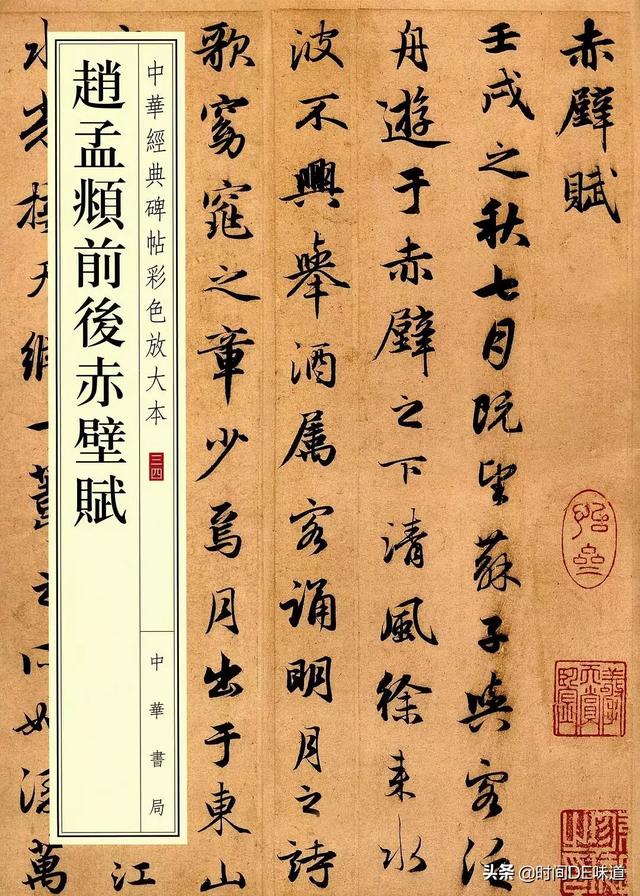 赤壁賦
壬戌之秋七月既望蘇子與客泛
舟遊于赤壁之下清風徐来水
波不興舉酒屬客誦明月之詩
歌窈窕之章少焉月出于東山
江
水光接天縱一葦之所如凌萬
中華經典碑帖彩色放大本 三四
趙孟頫前後赤壁賦
中華書局
头条 @时间DE味道